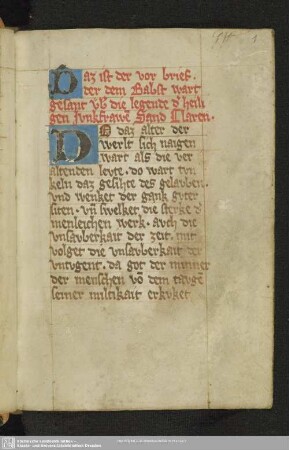 Daz ist der vor brief.
der dem Babst wart
gesant vb die legende d' heili
gen Junkfrawē Sand Claren.
DO daz alter der
werlt sich naigen
wart als die ver
altenden leyte. do wart tun
keln daz gesihte des gelauben.
und wenket der gank guter
siten. vn swelket die sterke d'
menleichen werk. auch die
unsauberkait der zeit. mit
volget die unsauberkait der
untugent. da got der minner
der menschen vō dem taugē
seiner miltikait erkuket